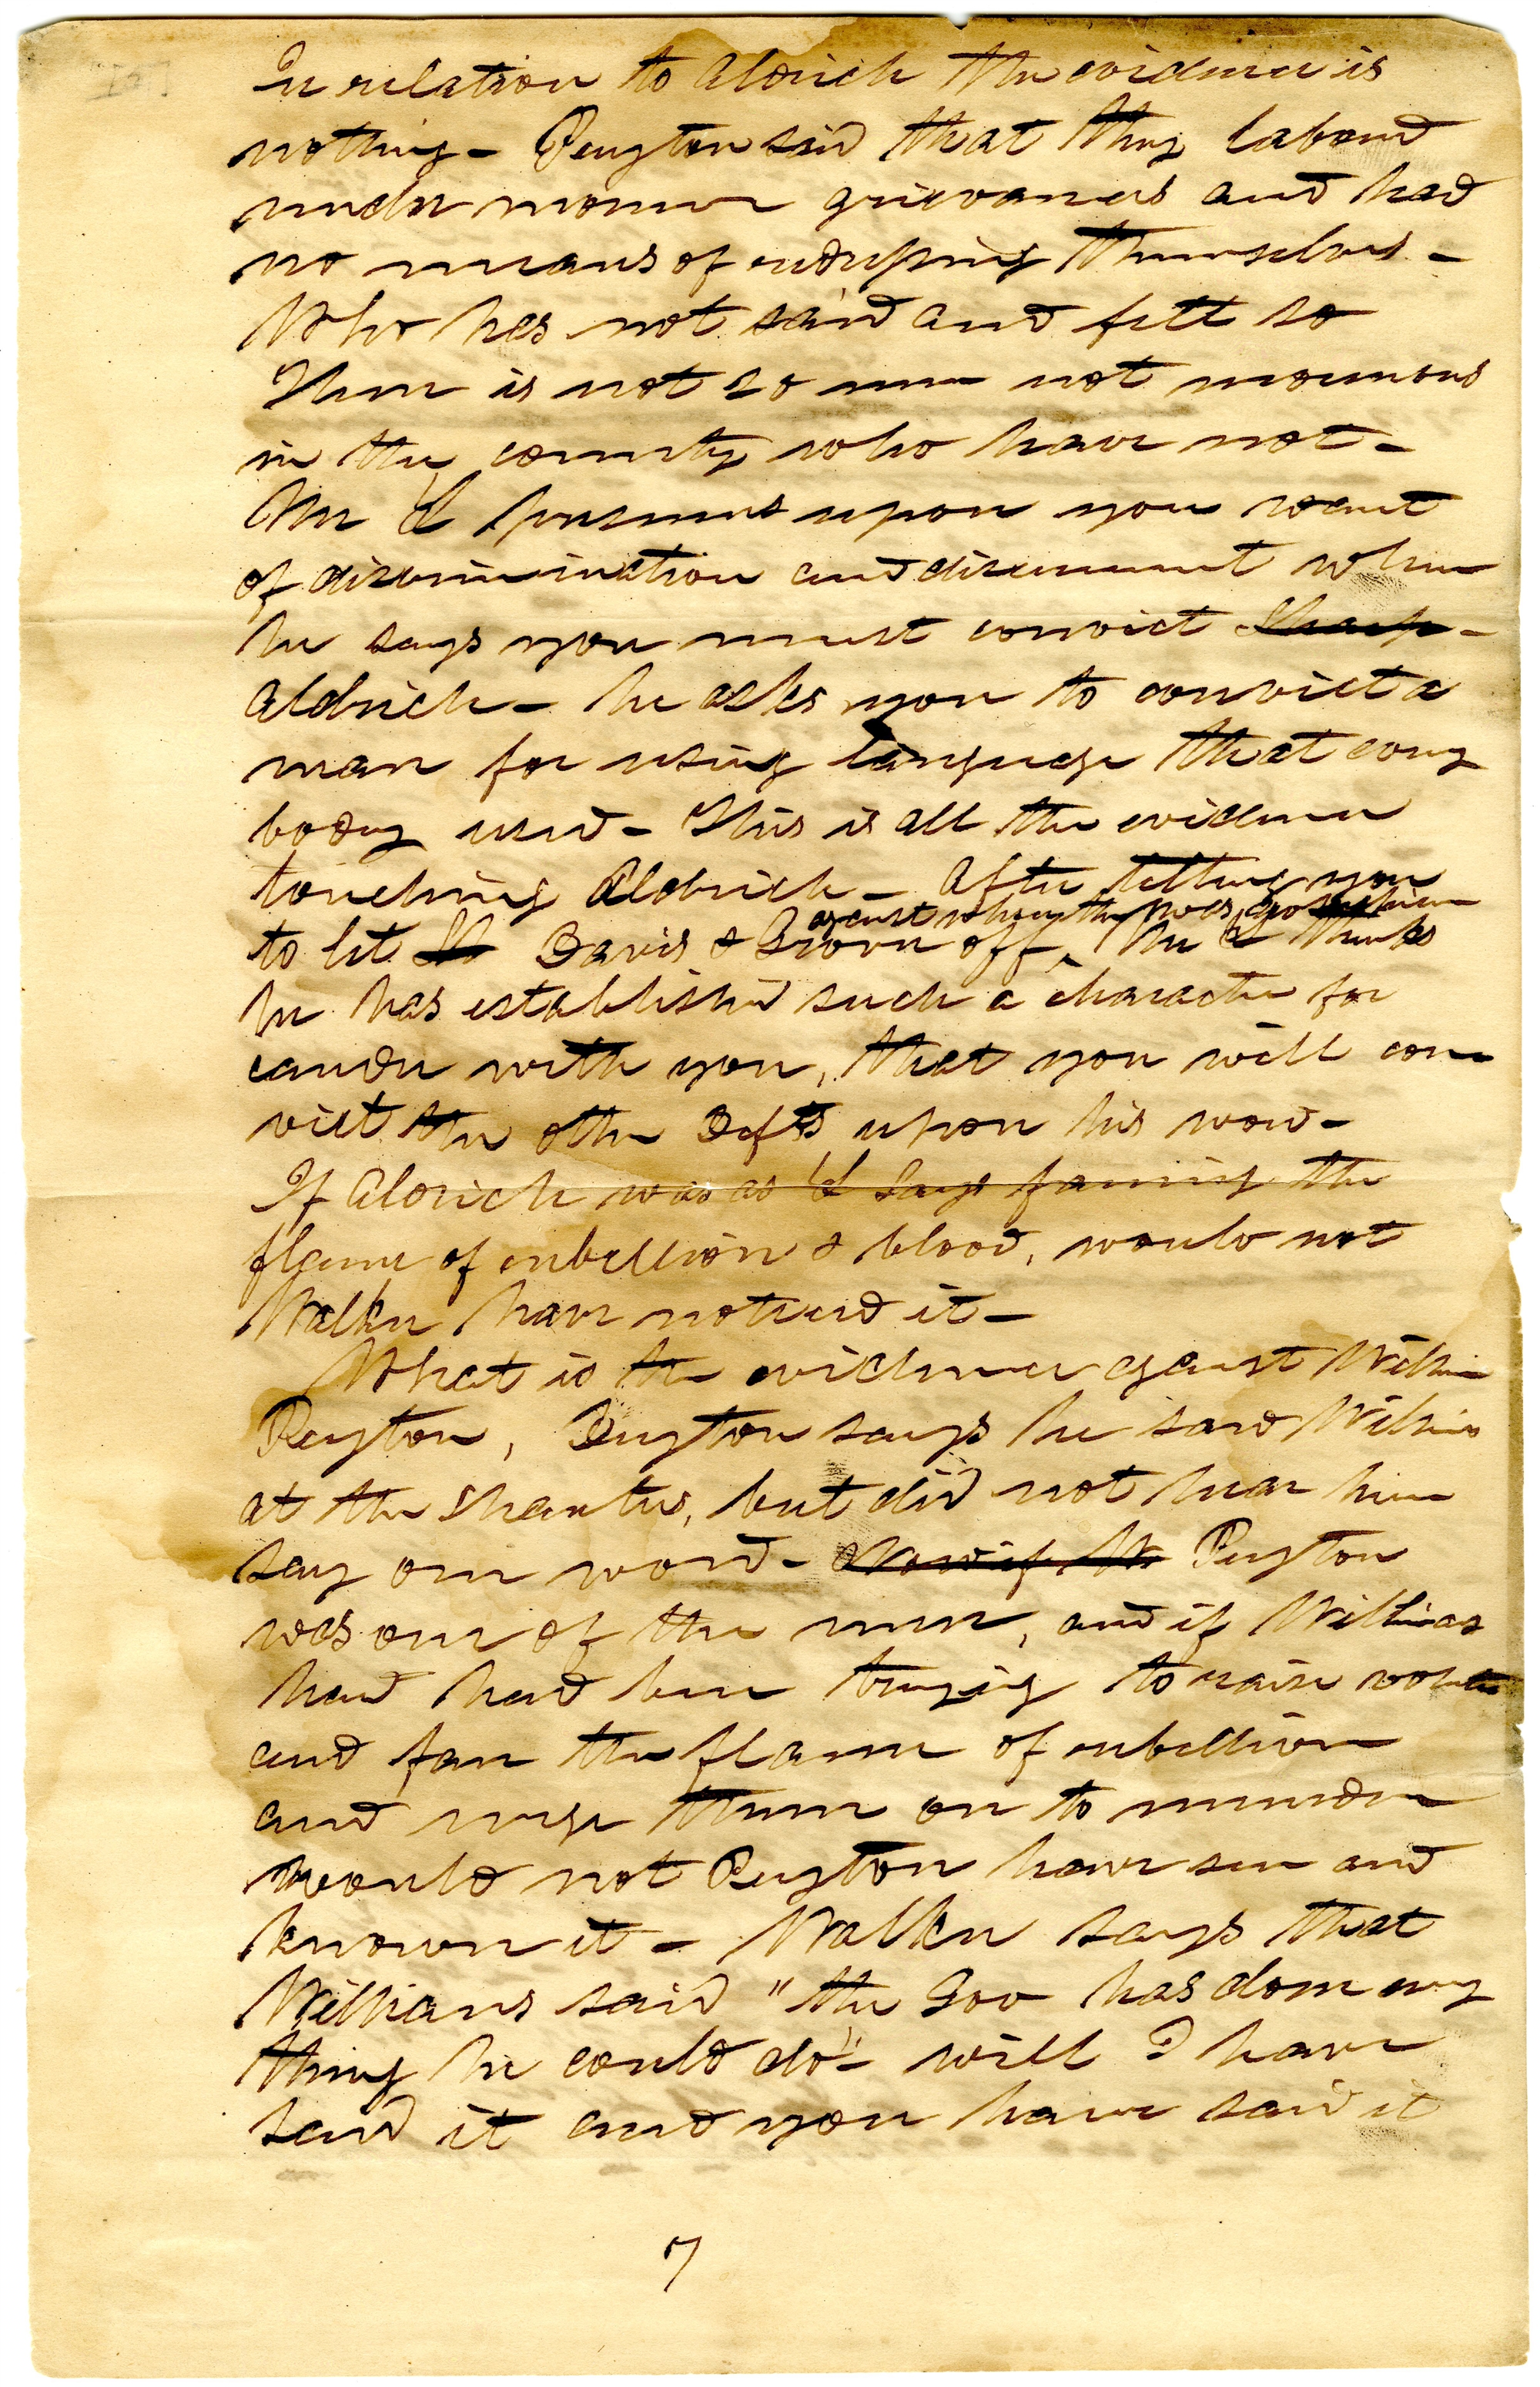 In relation to Aldrich the evidence is
nothing - Peyton said that they labored
under mormon grievances and had
no means of redressing themselves -
Who has not said and felt so
There is not 20 men not mormons
in the county who have not -
Mr L presumes upon your want
of discrimination and discernment when
he says you must convict Sharp -
Aldrich - he asks you to convict a
man for using language that every
body used - This is all the evidence
touching Aldrich - After telling you
against whom there was no
to let Davis & Grover off, Mr L thinks
he has established such a character for
candor with you, that you will con
vict the other Defts upon his word -
If Aldrich was as L says fanning the
flame of rebellion & blood, would not
Walker have noticed it -
What is the evidence against Williams
Peyton, Peyton says he saw Williams
at the Shanties, but did not hear him
say one word - Now if W Peyton
was one of the men, and if Williams
had had been trying to raise
and fan the flame of rebellion
and urge them on to murder
would not Peyton have seen and
known it - Walker says that
Williams said "the Gov has done every
thing he could do" - well I have
said it and you have said it
7